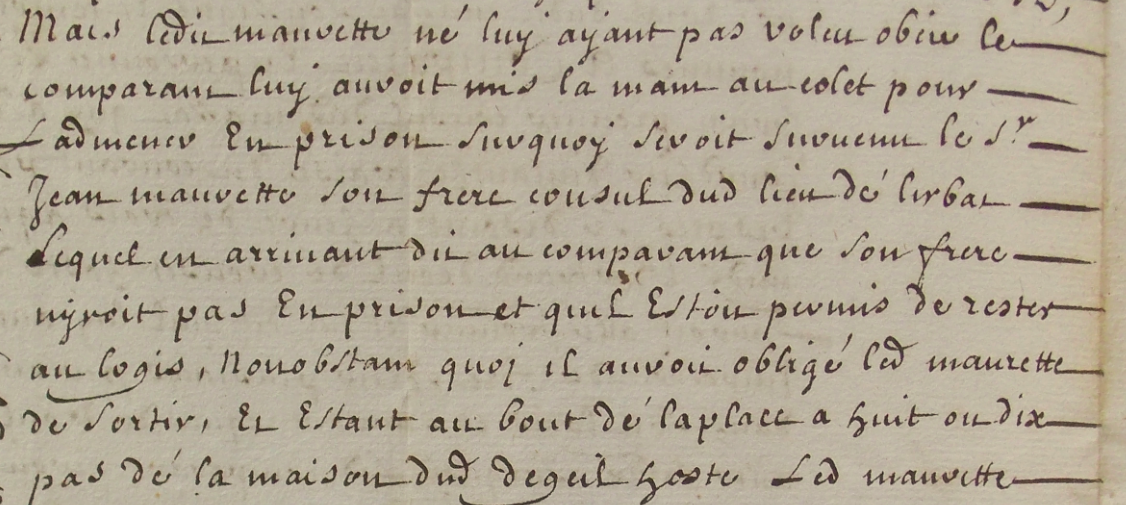 Mais ledit maurette né luy ayant pas voleu obeir le
comparant luy auroit mis la main au colet pour
Ladmener En prison surquoy seroit survenu le Sr
Jean maurette son frere consul dud lieu dé lirbat
Lequel en arrivant dit au comparant que son frere
nyroit pas En prison et quil Estoit permis de rester
au logis, Nonobstant quoy il auroit obligé led maurette
de sortir, Et Estant au bout dé la place a huit ou dix
pas dé la maison dud degeil hoste Led maurette